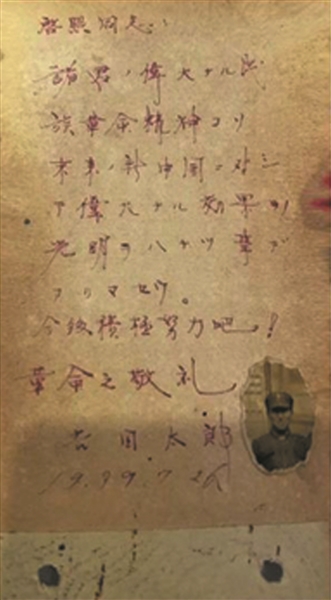 啓熙同志
諸君ノ偉大ナル民
族革命精神ヨリ
未来ノ新中国ニ対シ
テ偉大ナル効果ヲ
光明ヲハナツ事デ
アリマセウ。
今後積極努力吧!
革命之敬礼
吉田太郎
1939.7.